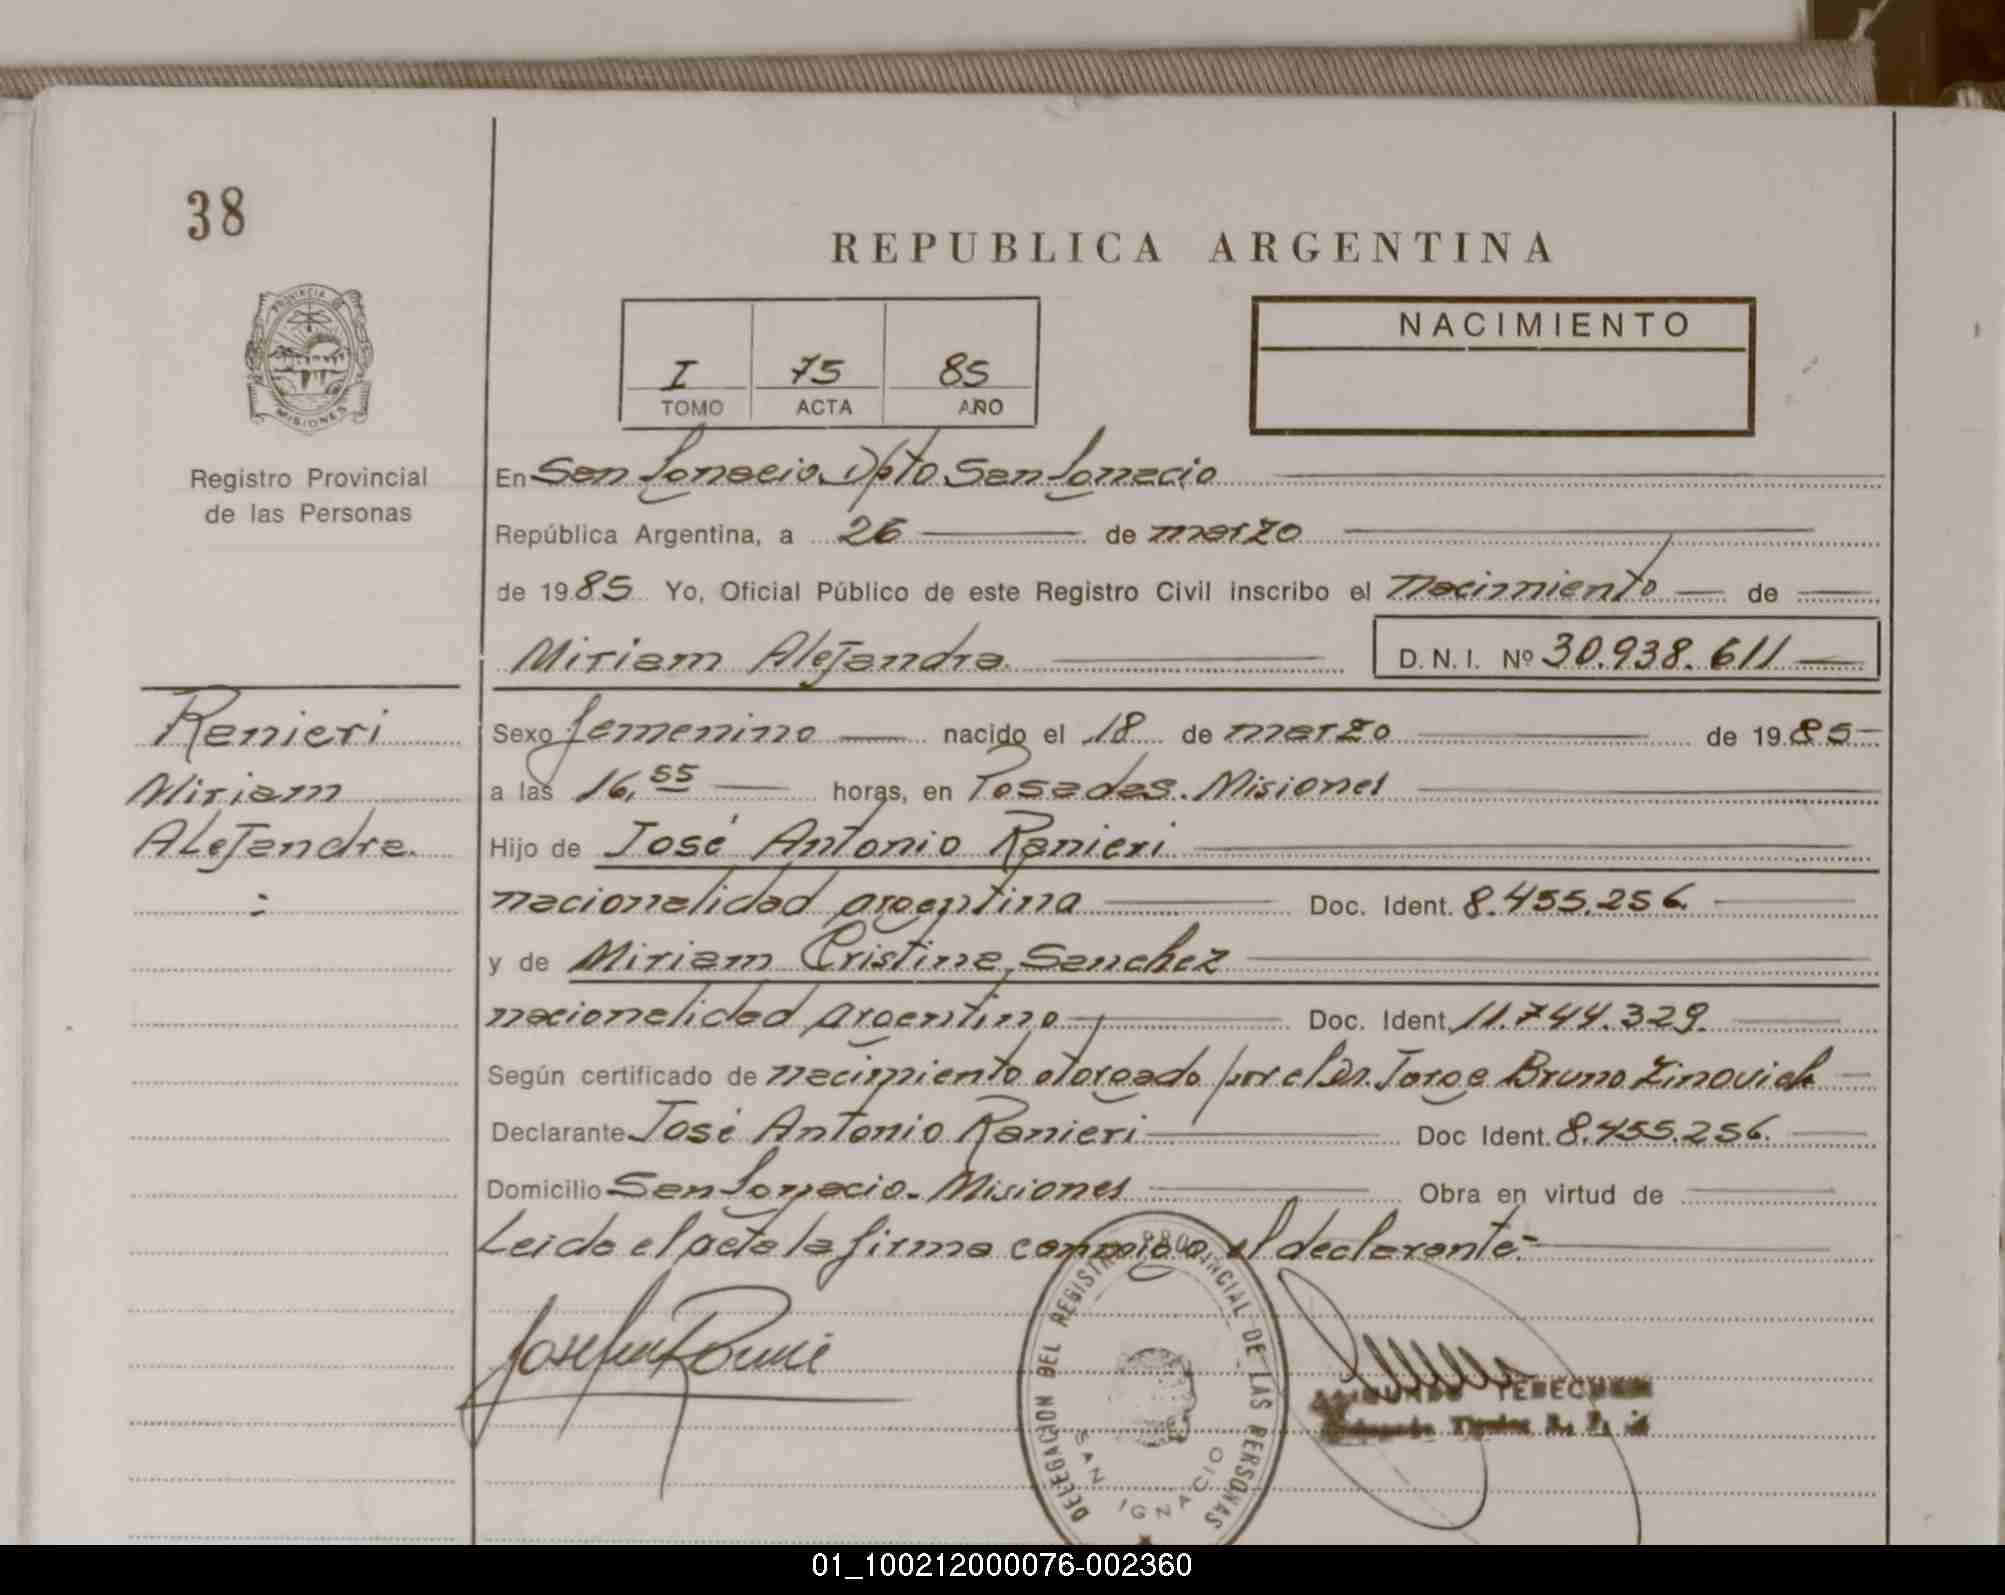 38
REPUBLICA ARGENTINA
PROVINCIA DE
MISIONES
I 75 85
TOMO ACTA AÑO
NACIMIENTO
Registro Provincial
de las Personas
En San Ignacio Dpto San Ignacio
República Argentina, a 26 de marzo
de 1985 Yo, Oficial Público de este Registro Civil inscribo el nacimiento de
Miriam Alejandra D.N.I. Nº 30.938.611
Ranieri
Miriam
Alejandra.
Sexo femenino nacido el 18 de marzo de 1985
a las 16,55 horas, en Posadas. Misiones
Hijo de José Antonio Ranieri
nacionalidad argentina Doc. Ident. 8.455.256
y de Miriam Cristina Sanchez
nacionalidad argentina Doc. Ident. 11.744.329.
Según certificado de nacimiento otorgado por el Dr. Jorge Bruno Zinovich
Declarante José Antonio Ranieri Doc Ident. 8.455.256.
Domicilio San Ignacio. Misiones Obra en virtud de
Leida el acta la firma conmigo el declarante.-
DELEGACION DEL REGISTRO PROVINCIAL DE LAS PERSONAS
SAN IGNACIO
01_100212000076-002360